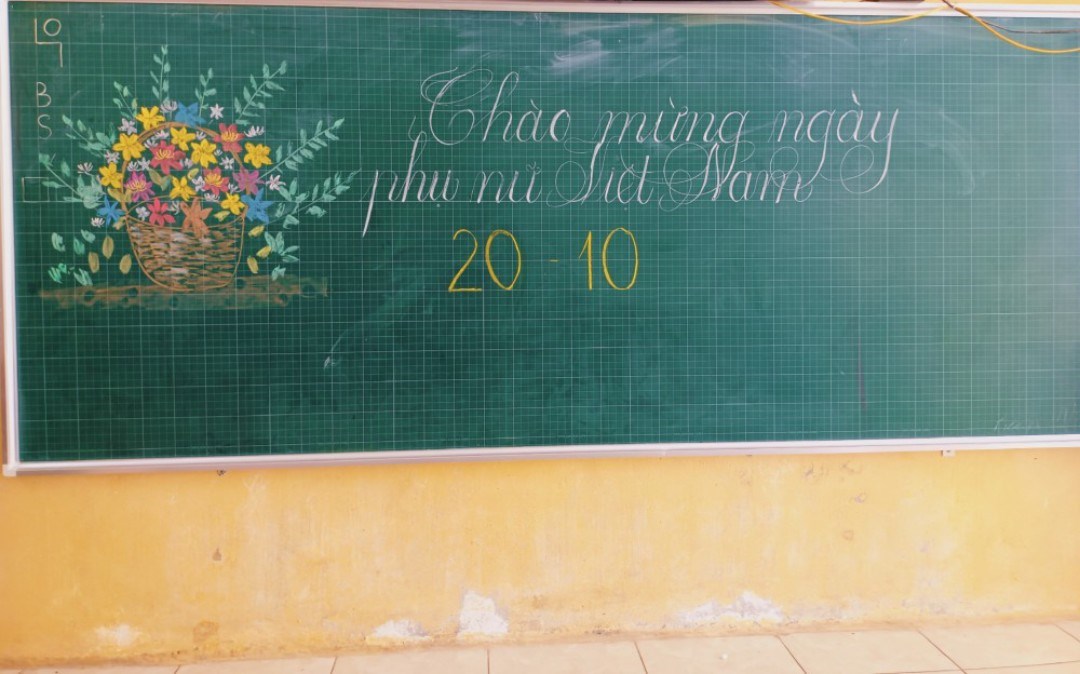 Chào mừng ngày
phụ nữ Việt Nam
20 - 10
B
S